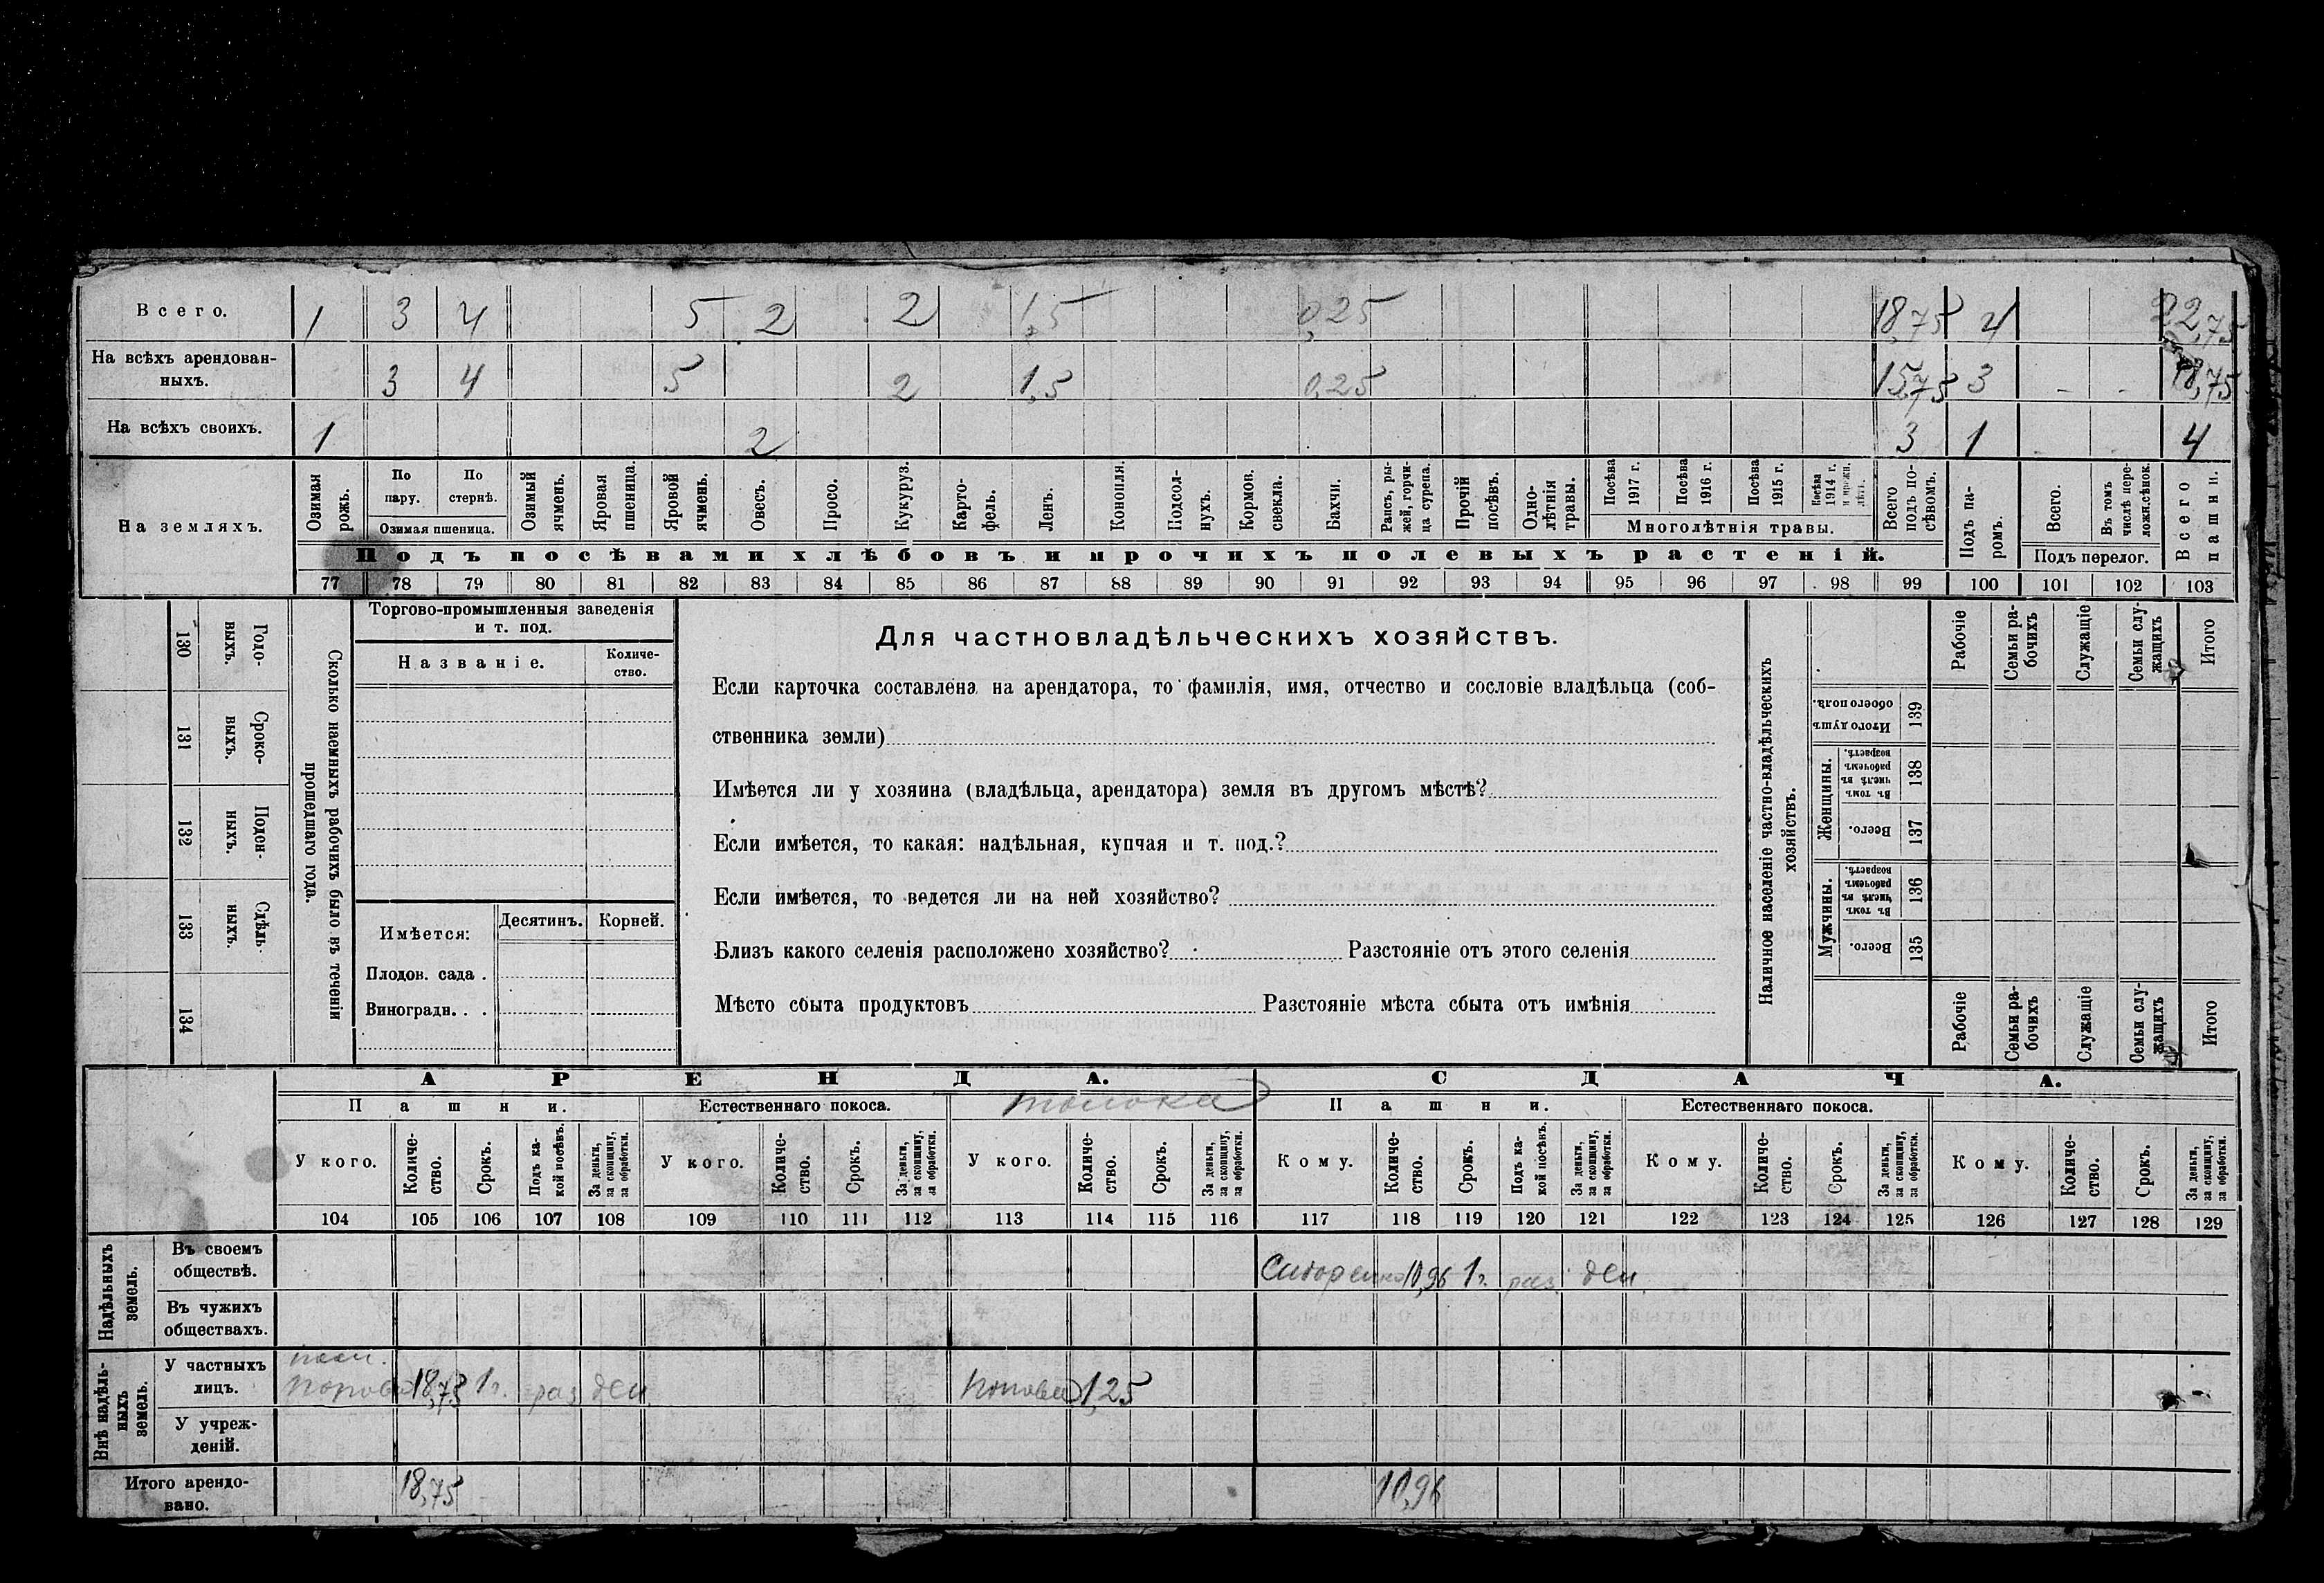 Всего. 1 3 4 5 2 2 1,5 0,25 18,75 4 22,75
На всѣхъ арендован-
ныхъ. 3 4 5 2 1,5 0,25 15,75 3 - - 18,75
На всѣхъ своихъ. 1 2 3 1 4
На земляхъ.
Озимая рожь.
По пару.
По стернѣ.
Озимая пшеница.
Озимый ячмень.
Яровая пшеница.
Яровой ячмень.
Овесъ.
Просо.
Кукуруз.
Карто-
фель.
Ленъ.
Конопля.
Подсол-
нухъ.
Кормов. свекла.
Бахчи.
Рапсъ, ры-
жей, горчи-
ца сурепа.
Прочій посѣвъ.
Одно-
лѣтнія травы.
Посѣва 1917 г.
Посѣва 1916 г.
Посѣва 1915 г.
Посѣва 1914 г. и прежн. лѣтъ.
Многолѣтнія травы.
Всего подъ по-
сѣвомъ.
Подъ па-
ромъ.
Всего.
Въ томъ числѣ пере-
ложн.сѣнок.
Подъ перелог.
Всего пашни.
Подъ посѣвами хлѣбовъ и прочихъ полевыхъ растеній.
77 78 79 80 81 82 83 84 85 86 87 88 89 90 91 92 93 94 95 96 97 98 99 100 101 102 103
130 Годо-
выхъ.
131 Сроко-
выхъ.
132 Поден-
ныхъ.
133 Сдѣль-
ныхъ.
134
Сколько наемныхъ рабочихъ было въ теченіи
прошедшаго года.
Торгово-промышленныя заведенія
и т. под.
Названіе.
Количе-
ство.
Имѣется:
Десятинъ. Корней.
Плодов. сада .
Виноградн. . .
Для частновладѣльческихъ хозяйствъ.
Если карточка составлена на арендатора, то фамилія, имя, отчество и сословіе владѣльца (соб-
ственника земли)
Имѣется ли у хозяина (владѣльца, арендатора) земля въ другомъ мѣстѣ?
Если имѣется, то какая: надѣльная, купчая и т. под.?
Если имѣется, то ведется ли на ней хозяйство?
Близъ какого селенія расположено хозяйство? Разстояніе отъ этого селенія
Мѣсто сбыта продуктовъ Разстояніе мѣста сбыта отъ имѣнія
Наличное населеніе частно-владѣльческихъ
хозяйствъ.
Рабочіе
Семьи ра-
бочихъ
Служащіе
Семьи слу-
жащихъ
Итого
Итого душъ обоего пола. 139
Женщины.
Въ томъ числѣ въ рабочемъ возрастѣ. 138
Всего. 137
Мужчины.
Въ томъ числѣ въ рабочемъ возрастѣ. 136
Всего. 135
Рабочіе
Семьи ра-
бочихъ
Служащіе
Семьи слу-
жащихъ
Итого
АРЕНДА.
СДАЧА.
Пашни.
Естественнаго покоса.
толока
Пашни.
Естественнаго покоса.
У кого.
Количе-
ство.
Срокъ.
Подъ ка-
кой посѣвъ.
За деньги, за скопщину, за обработки.
У кого.
Количе-
ство.
Срокъ.
За деньги, за скопщину, за обработки.
У кого.
Количе-
ство.
Срокъ.
За деньги, за скопщину, за обработки.
Кому.
Количе-
ство.
Срокъ.
Подъ ка-
кой посѣвъ.
За деньги, за скопщину, за обработки.
Кому.
Количе-
ство.
Срокъ.
За деньги, за скопщину, за обработки.
Кому.
Количе-
ство.
Срокъ.
За деньги, за скопщину, за обработки.
104 105 106 107 108 109 110 111 112 113 114 115 116 117 118 119 120 121 122 123 124 125 126 127 128 129
Надѣльныхъ
земель.
Въ своемъ
обществѣ. Сидоренко 10,96 1 г. раз ден
Въ чужихъ
обществахъ.
Внѣ надѣль-
ныхъ
земель.
У частныхъ
лицъ. пом. Попова 18,75 1 г. раз ден. Попова 1,25
У учреж-
деній.
Итого арендо-
вано. 18,75 10,96